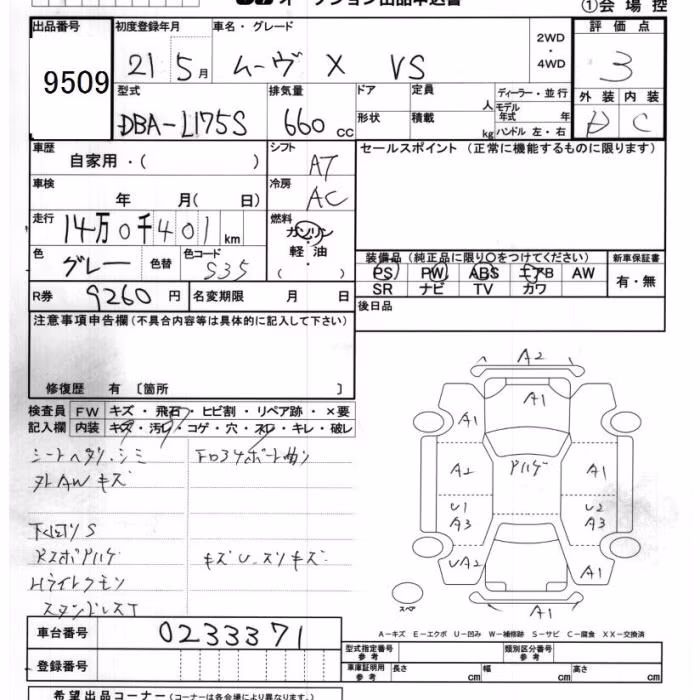 オークション出品申込書
①会場控
出品番号 初度登録年月 車名・グレード 2WD・4WD 評価点
9509 21 5月 ムーヴ X VS 3
型式 排気量 ドア 定員 人 ディーラー・並行 外装 内装
DBA-L175S 660 cc 形状 積載 kg モデル年式 年 ハンドル 左・右 D C
車歴 シフト セールスポイント (正常に機能するものに限ります)
自家用・( ) AT
車検 年 月( 日) 冷房 AC
走行 14万0千401km 燃料 ガソリン 軽油 ( )
色 グレー 色替 色コード S35
装備品 (純正品に限り○をつけてください) 新車保証書
PS PW ABS エアB AW 有・無
SR ナビ TV カワ
R券 9260円 名変期限 月 日
後日品
注意事項申告欄(不具合内容等は具体的に記入して下さい)
修復歴 有 〔箇所 〕
検査員 FW キズ・飛石・ヒビ割・リペア跡・×要
記入欄 内装 キズ・汚レ・コゲ・穴・スレ・キレ・破レ
シートヘタリ、シミ
AWキズ
下回りS
キズU、スリキズ
A2
A1
A1
A2 アハゲ A1
U1 U2
A3 A3
UA2 A1
A1
スペア
A－キズ E－エクボ U－凹み W－補修跡 S－サビ C－腐食 XX－交換済
車台番号 0233371
登録番号
型式指定番号 参考 類別区分番号 参考
車庫証明用 参考 長さ cm 幅 cm 高さ cm
希望出品コーナー(コーナーは各会場により異なります。)